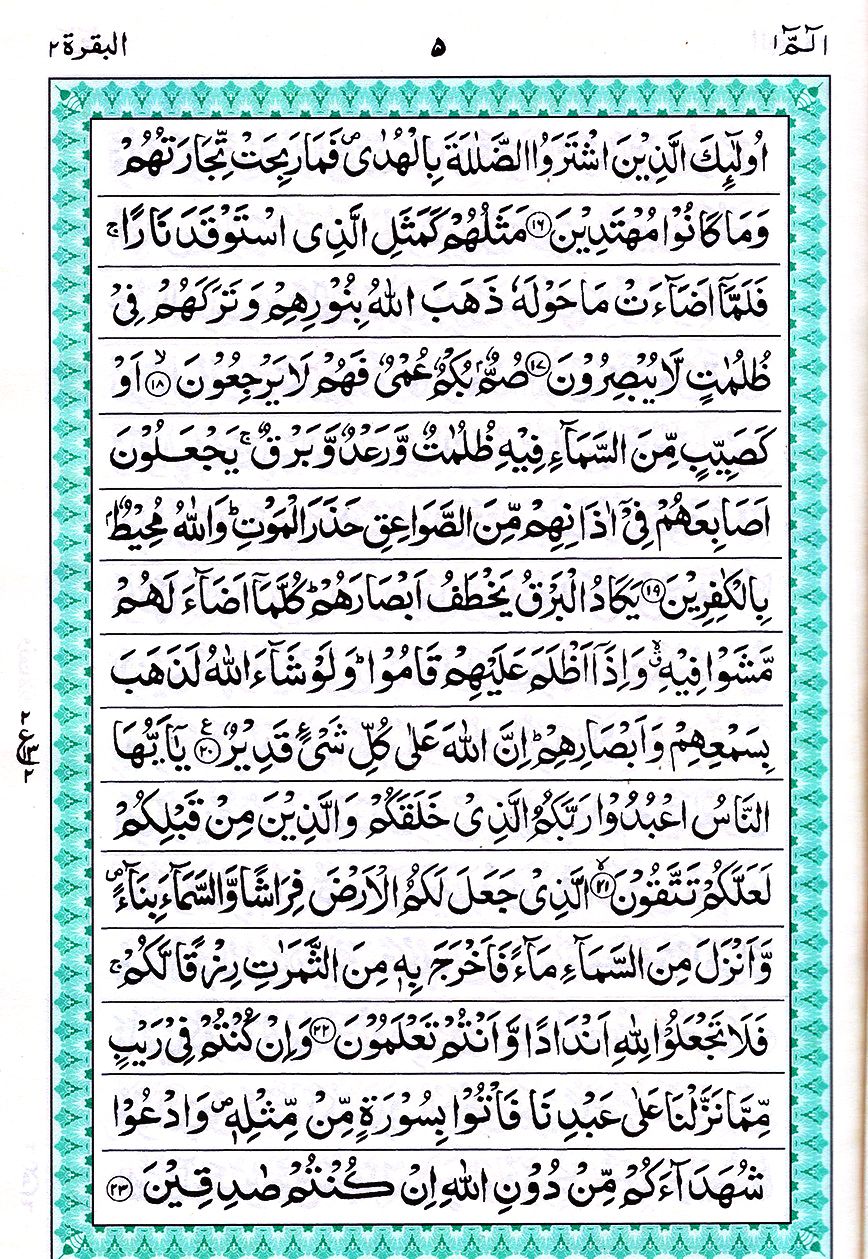 الٓمّٓ ١ ٥ البقرة ٢
اُولٰٓئِكَ الَّذِيْنَ اشْتَرَوُا الضَّلٰلَةَ بِالْهُدٰى ۪ فَمَا رَبِحَتْ تِّجَارَتُهُمْ
وَمَا كَانُوْا مُهْتَدِيْنَ ﴿١٦﴾ مَثَلُهُمْ كَمَثَلِ الَّذِى اسْتَوْقَدَ نَارًا ۚ
فَلَمَّآ اَضَآءَتْ مَا حَوْلَهٗ ذَهَبَ اللّٰهُ بِنُوْرِهِمْ وَتَرَكَهُمْ فِىْ
ظُلُمٰتٍ لَّا يُبْصِرُوْنَ ﴿١٧﴾ صُمٌّۢ بُكْمٌ عُمْىٌ فَهُمْ لَا يَرْجِعُوْنَ ۙ﴿١٨﴾ اَوْ
كَصَيِّبٍ مِّنَ السَّمَآءِ فِيْهِ ظُلُمٰتٌ وَّرَعْدٌ وَّبَرْقٌ ۚ يَجْعَلُوْنَ
اَصَابِعَهُمْ فِىْٓ اٰذَانِهِمْ مِّنَ الصَّوَاعِقِ حَذَرَ الْمَوْتِ ؕ وَاللّٰهُ مُحِيْطٌۢ
بِالْكٰفِرِيْنَ ﴿١٩﴾ يَكَادُ الْبَرْقُ يَخْطَفُ اَبْصَارَهُمْ ؕ كُلَّمَآ اَضَآءَ لَهُمْ
مَّشَوْا فِيْهِ ۙۗ وَاِذَآ اَظْلَمَ عَلَيْهِمْ قَامُوْا ؕ وَلَوْ شَآءَ اللّٰهُ لَذَهَبَ
بِسَمْعِهِمْ وَاَبْصَارِهِمْ ؕ اِنَّ اللّٰهَ عَلٰى كُلِّ شَىْءٍ قَدِيْرٌ ﴿٢٠﴾ ع يٰٓاَيُّهَا
النَّاسُ اعْبُدُوْا رَبَّكُمُ الَّذِىْ خَلَقَكُمْ وَالَّذِيْنَ مِنْ قَبْلِكُمْ
لَعَلَّكُمْ تَتَّقُوْنَ ۙ﴿٢١﴾ الَّذِىْ جَعَلَ لَكُمُ الْاَرْضَ فِرَاشًا وَّالسَّمَآءَ بِنَآءً ۪
وَّاَنْزَلَ مِنَ السَّمَآءِ مَآءً فَاَخْرَجَ بِهٖ مِنَ الثَّمَرٰتِ رِزْقًا لَّكُمْ ۚ
فَلَا تَجْعَلُوْا لِلّٰهِ اَنْدَادًا وَّاَنْتُمْ تَعْلَمُوْنَ ﴿٢٢﴾ وَاِنْ كُنْتُمْ فِىْ رَيْبٍ
مِّمَّا نَزَّلْنَا عَلٰى عَبْدِنَا فَاْتُوْا بِسُوْرَةٍ مِّنْ مِّثْلِهٖ ۪ وَادْعُوْا
شُهَدَآءَكُمْ مِّنْ دُوْنِ اللّٰهِ اِنْ كُنْتُمْ صٰدِقِيْنَ ﴿٢٣﴾